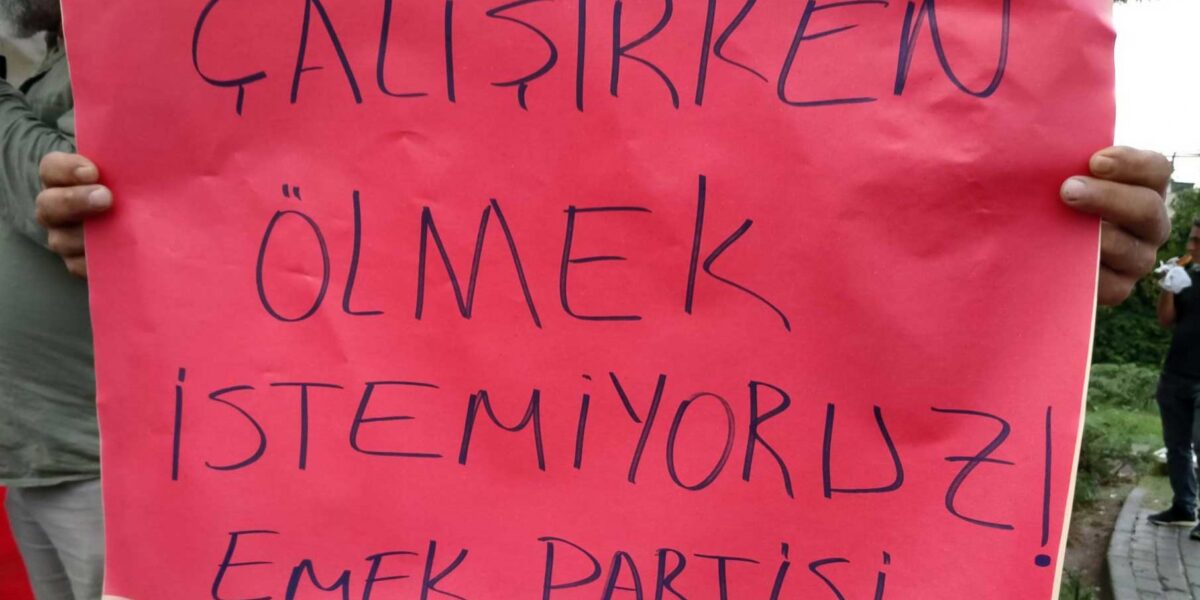 ÇALIŞIRKEN
ÖLMEK
İSTEMİYORUZ!
EMEK PARTİSİ